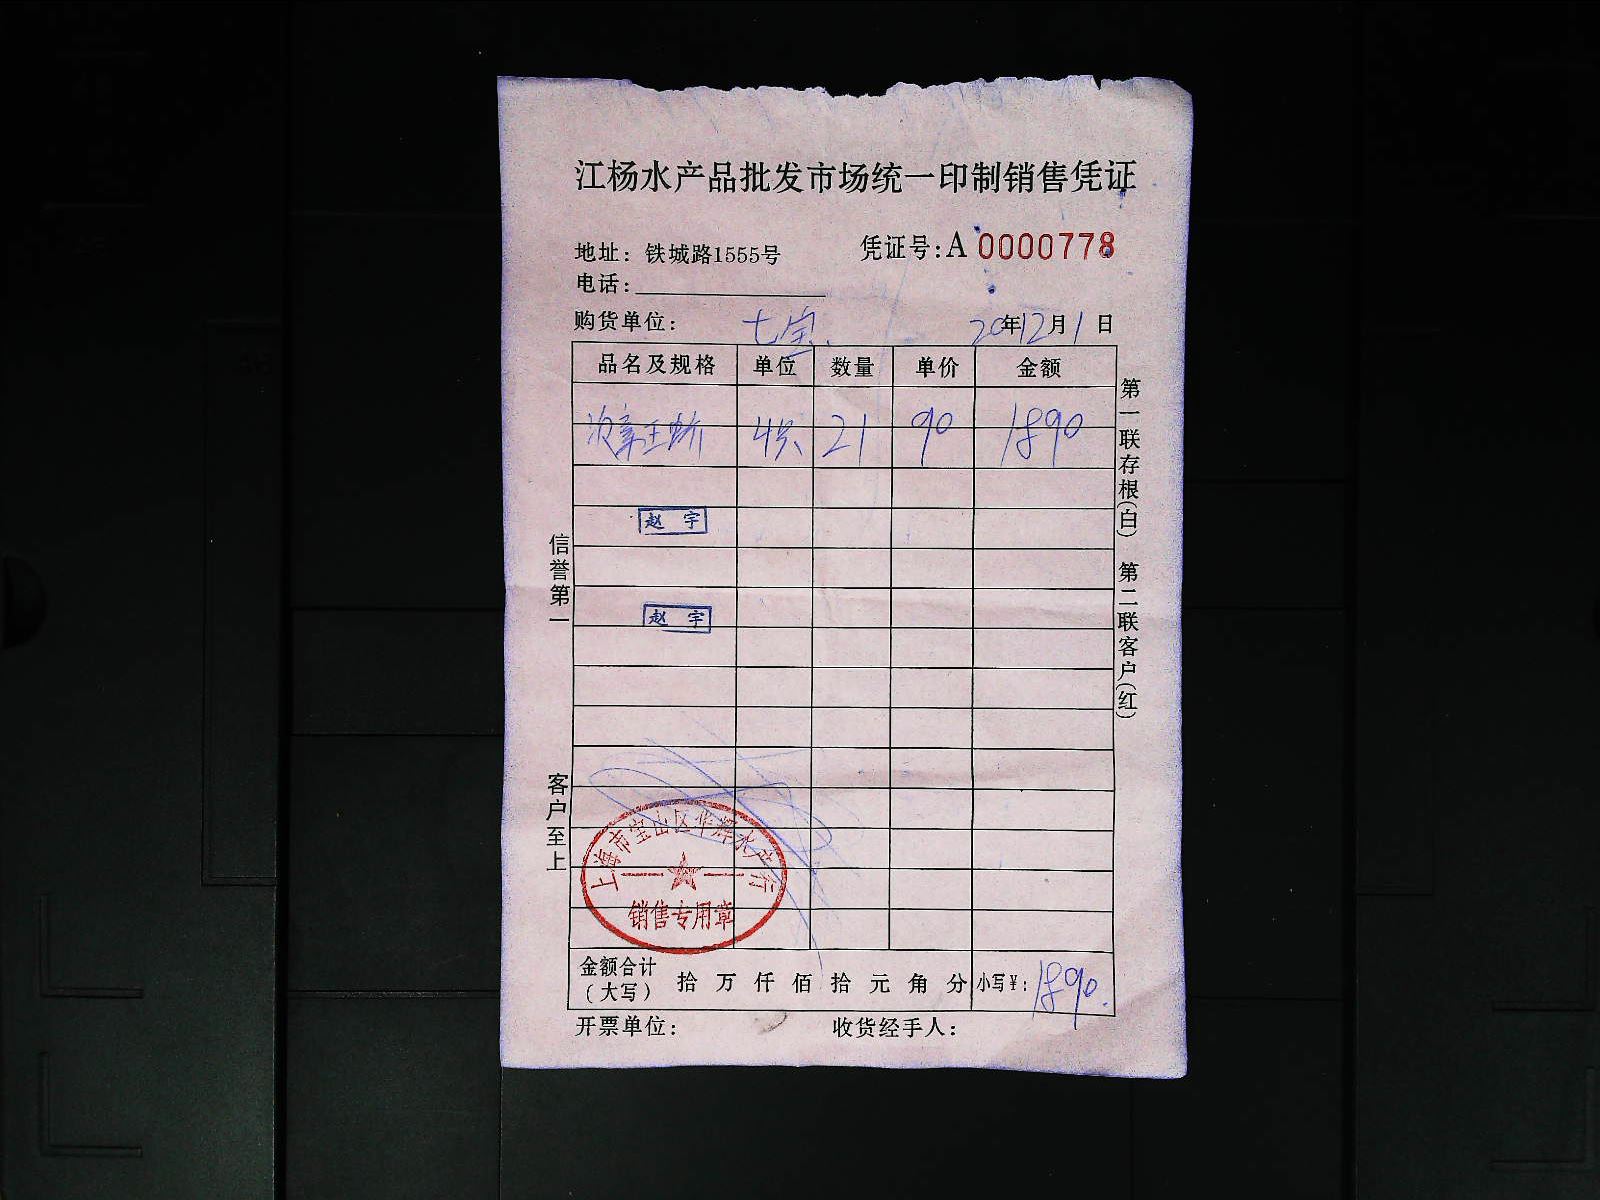 江杨水产品批发市场统一印制销售凭证
地址：铁城路1555号
凭证号：A 0000778
电话：
购货单位： 七宝
20年12月1日
品名及规格 单位 数量 单价 金额
21 90 1890
赵 宇
赵 宇
信誉第一
客户至上
第一联存根（白） 第二联客户（红）
上海市宝山区华辉水产行
销售专用章
金额合计（大写） 拾 万 仟 佰 拾 元 角 分 小写¥： 1890.
开票单位： 收货经手人：